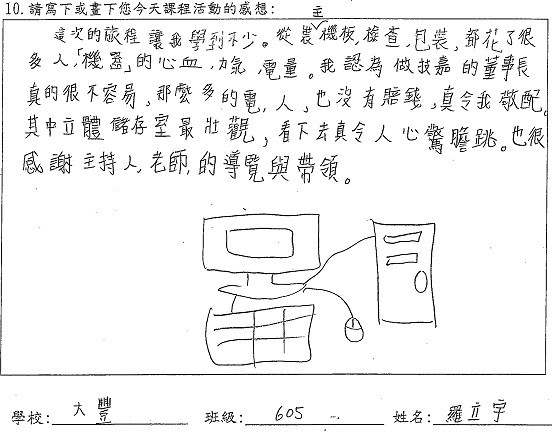 10. 請寫下或畫下您今天課程活動的感想:
這次的旅程讓我學到不少。從農主機板,檢查,包裝,都花了很
多人「機器」的心血,力氣,電量。我認為做技嘉的董事長
真的很不容易,那麼多的電,人,也沒有賠錢,真令我敬配。
其中立體儲存室最壯觀,看下去真令人心驚膽跳。也很
感謝主持人,老師,的導覽與帶領。
學校: 大豐 班級: 605 姓名: 羅立宇